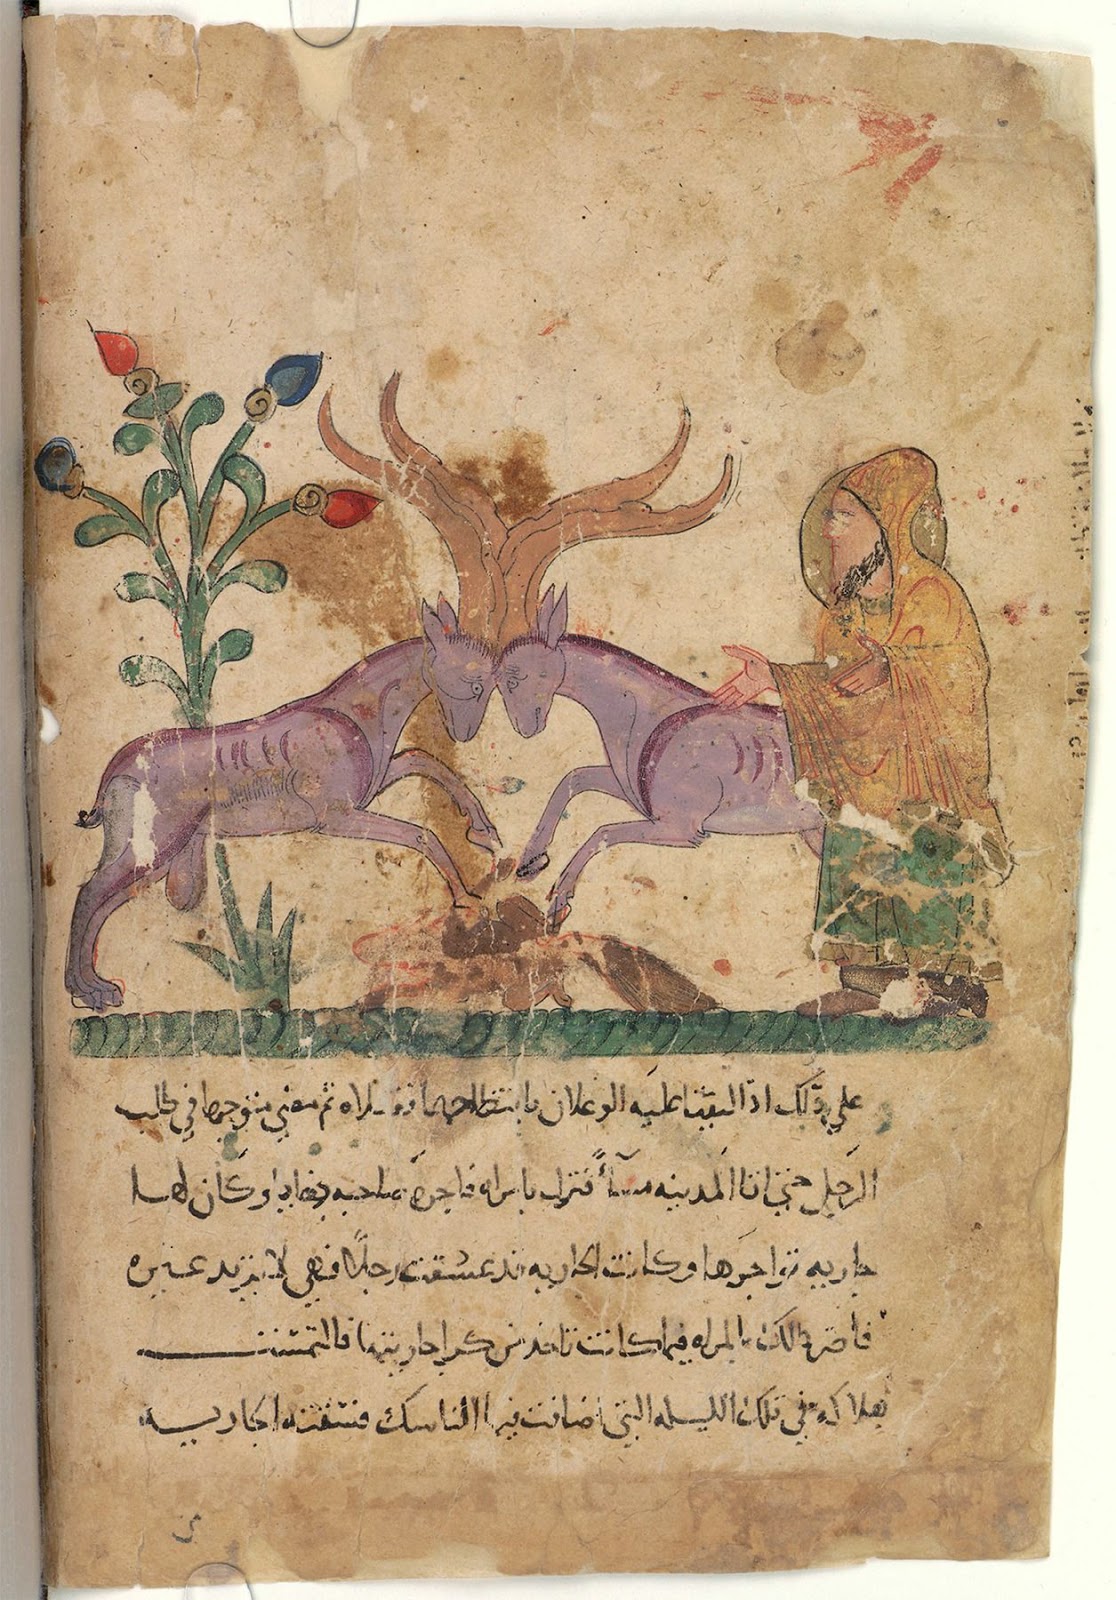 على ذلك اذ التقيا عليه الوعلان بانتطاحهما فقتلاه ثم مضى متوجها في طلب
الرجل حتى اتا المدينه مسآءً فنزل بامراه فاجره صاحبه بغايا وكان لها
جاريه تواجرها وكانت الجاريه قد عشقت رجلاً فهي لا تريد غيره
فاضر ذلك بالمراه فيما كانت تاخذ من كرا جاريتها فالتمست
هلاكه في تلك الليله التي اضافت فيها الناسك فسقته الجاريه